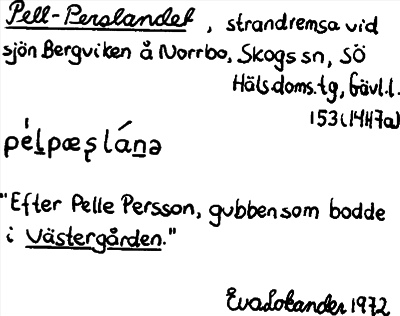 Pell-Perslandet, strandremsa vid
sjön Bergviken å Norrbo, Skogs sn, SÖ
Häls.doms.tg, Gävl.l.
153i(14H7a)
pél̠pæʂlán̠ə
"Efter Pelle Persson, gubben som bodde
i Västergården."
Eva Lokander 1972